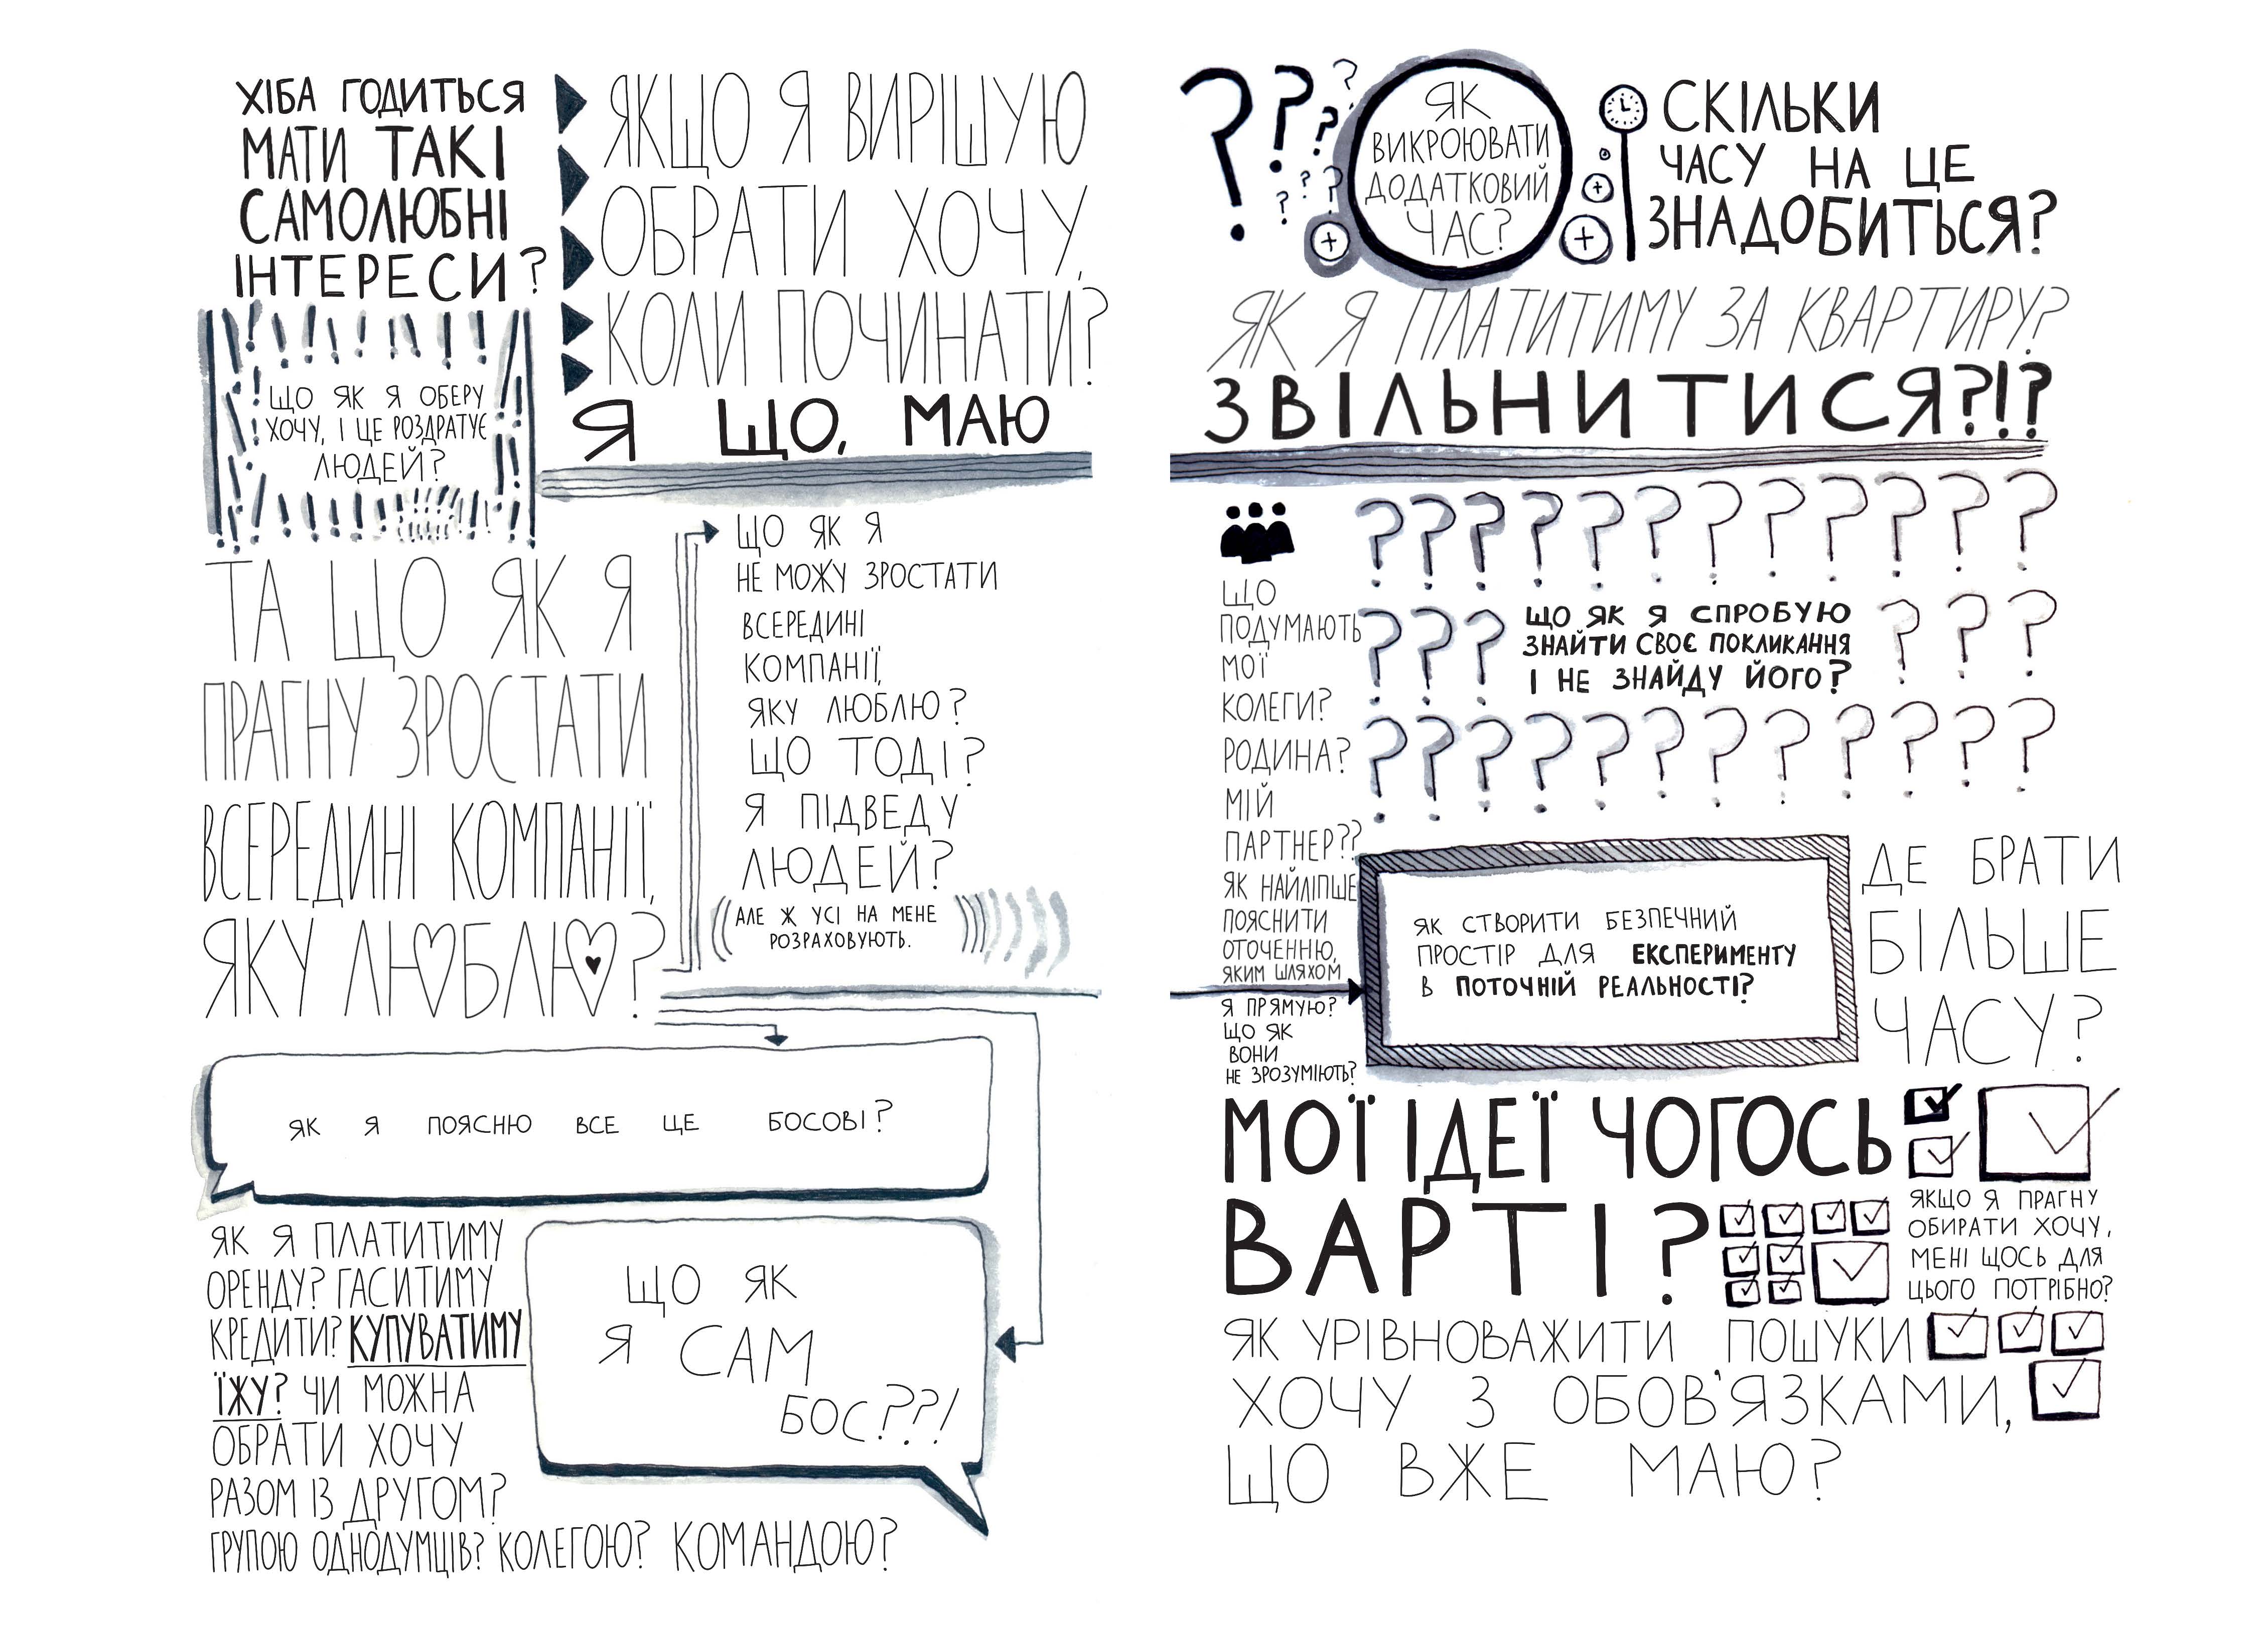 ХІБА ГОДИТЬСЯ
МАТИ ТАКІ
САМОЛЮБНІ
ІНТЕРЕСИ?
ЯКЩО Я ВИРІШУЮ
ОБРАТИ ХОЧУ,
КОЛИ ПОЧИНАТИ?
ЩО ЯК Я ОБЕРУ
ХОЧУ, І ЦЕ РОЗДРАТУЄ
ЛЮДЕЙ?
Я ЩО, МАЮ
ТА ЩО ЯК Я
ПРАГНУ ЗРОСТАТИ
ВСЕРЕДИНІ КОМПАНІЇ,
ЯКУ ЛЮБЛЮ?
ЩО ЯК Я
НЕ МОЖУ ЗРОСТАТИ
ВСЕРЕДИНІ
КОМПАНІЇ,
ЯКУ ЛЮБЛЮ?
ЩО ТОДІ?
Я ПІДВЕДУ
ЛЮДЕЙ?
(АЛЕ Ж УСІ НА МЕНЕ
РОЗРАХОВУЮТЬ.)
ЯК Я ПОЯСНЮ ВСЕ ЦЕ БОСОВІ?
ЯК Я ПЛАТИТИМУ
ОРЕНДУ? ГАСИТИМУ
КРЕДИТИ? КУПУВАТИМУ
ЇЖУ? ЧИ МОЖНА
ОБРАТИ ХОЧУ
РАЗОМ ІЗ ДРУГОМ?
ГРУПОЮ ОДНОДУМЦІВ? КОЛЕГОЮ? КОМАНДОЮ?
ЩО ЯК
Я САМ
БОС??!
???????
ЯК
ВИКРОЮВАТИ
ДОДАТКОВИЙ
ЧАС?
СКІЛЬКИ
ЧАСУ НА ЦЕ
ЗНАДОБИТЬСЯ?
ЯК Я ПЛАТИТИМУ ЗА КВАРТИРУ?
ЗВІЛЬНИТИСЯ?!?
ЩО
ПОДУМАЮТЬ
МОЇ
КОЛЕГИ?
РОДИНА?
МІЙ
ПАРТНЕР??
ЯК НАЙЛІПШЕ
ПОЯСНИТИ
ОТОЧЕННЮ,
ЯКИМ ШЛЯХОМ
Я ПРЯМУЮ?
ЩО ЯК
ВОНИ
НЕ ЗРОЗУМІЮТЬ?
????????????
??? ЩО ЯК Я СПРОБУЮ ???
ЗНАЙТИ СВОЄ ПОКЛИКАННЯ
І НЕ ЗНАЙДУ ЙОГО?
????????????
ЯК СТВОРИТИ БЕЗПЕЧНИЙ
ПРОСТІР ДЛЯ ЕКСПЕРИМЕНТУ
В ПОТОЧНІЙ РЕАЛЬНОСТІ?
ДЕ БРАТИ
БІЛЬШЕ
ЧАСУ?
МОЇ ІДЕЇ ЧОГОСЬ
ВАРТІ?
ЯКЩО Я ПРАГНУ
ОБИРАТИ ХОЧУ,
МЕНІ ЩОСЬ ДЛЯ
ЦЬОГО ПОТРІБНО?
ЯК УРІВНОВАЖИТИ ПОШУКИ
ХОЧУ З ОБОВ'ЯЗКАМИ,
ЩО ВЖЕ МАЮ?